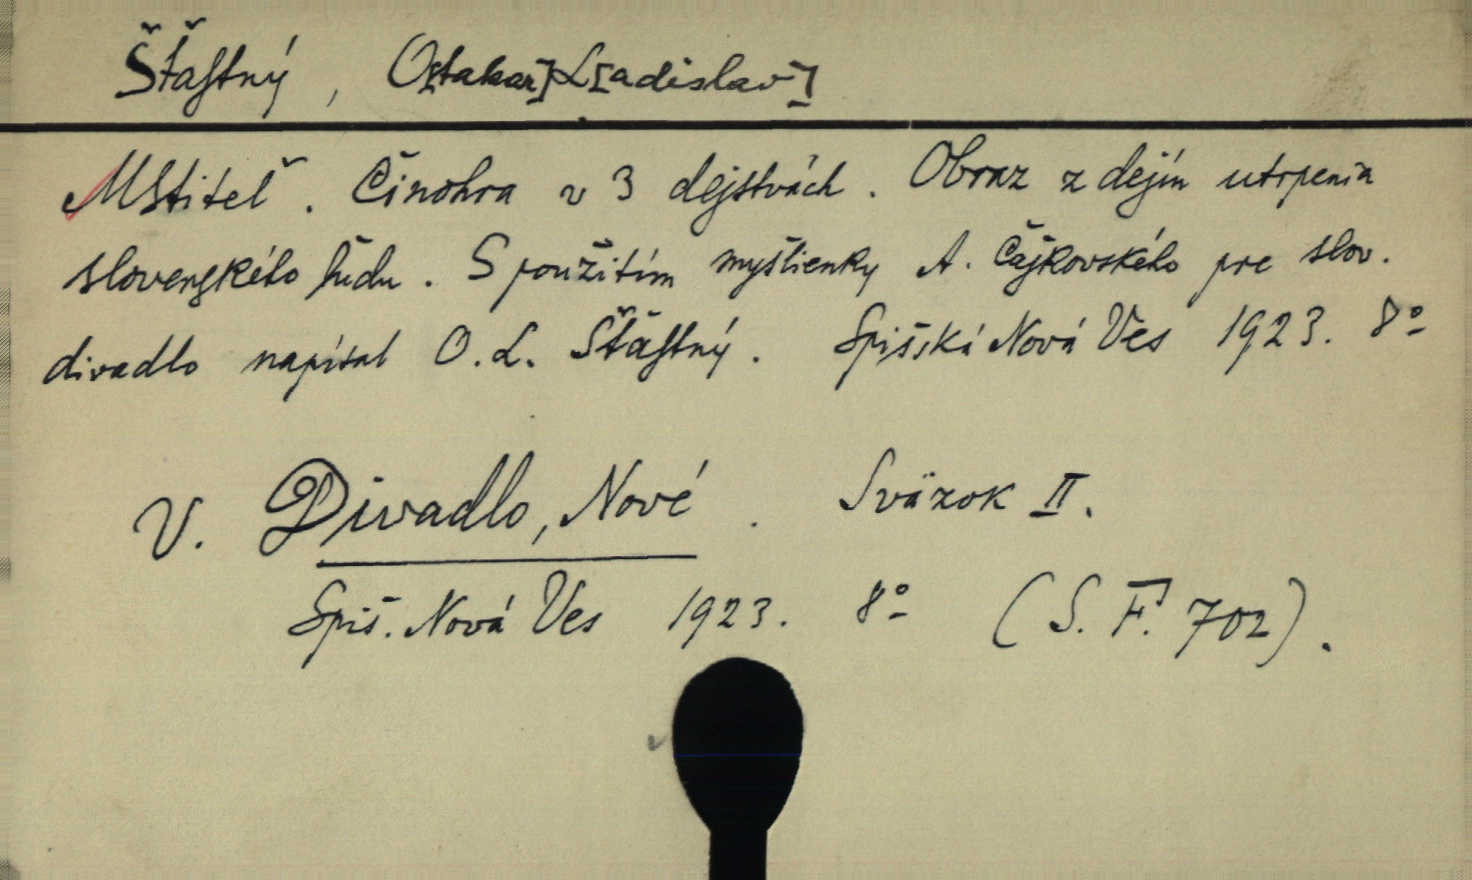 Šťastný, O[takar] L[adislav]
Mstiteľ. Činohra v 3 dejstvách. Obraz z dejín utrpenia
slovenského ľudu. S použitím myšlienky A. Čajkovského pre slov.
divadlo napísal O. L. Šťastný. Spišská Nová Ves 1923. 8º
V. Divadlo, Nové. Sväzok II.
Spiš. Nová Ves 1923. 8º (S. F. 702).